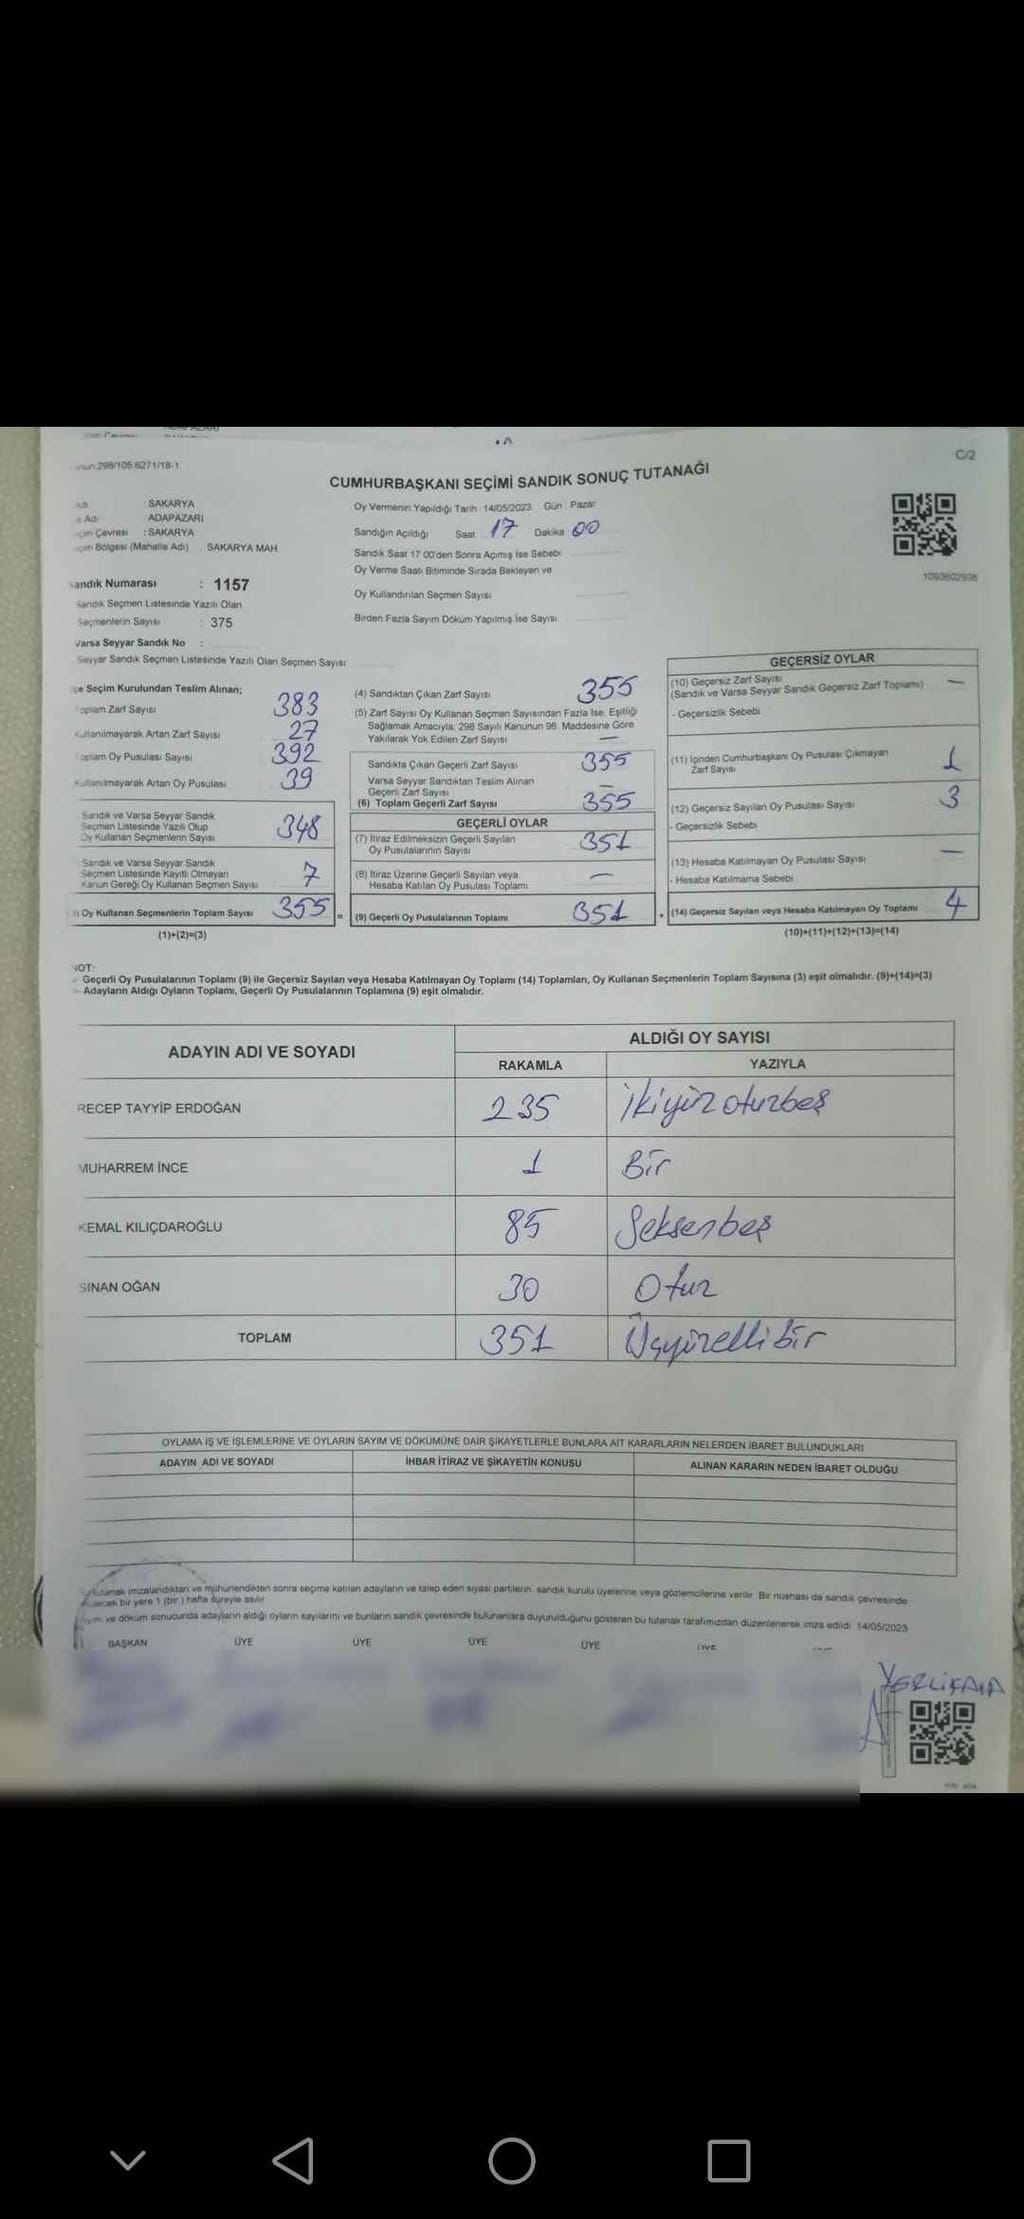 298/105.6271/18-1
C/2
CUMHURBAŞKANI SEÇİMİ SANDIK SONUÇ TUTANAĞI
Adı SAKARYA
Adı ADAPAZARI
Çevresi : SAKARYA
Bölgesi (Mahalle Adı) SAKARYA MAH
Sandık Numarası : 1157
Sandık Seçmen Listesinde Yazılı Olan
Seçmenlerin Sayısı : 375
Varsa Seyyar Sandık No :
Seyyar Sandık Seçmen Listesinde Yazılı Olan Seçmen Sayısı
Oy Vermenin Yapıldığı Tarih : 14/05/2023 Gün : Pazar
Sandığın Açıldığı Saat 17 Dakika 00
Sandık Saat 17 00'den Sonra Açımış İse Sebebi
Oy Verme Saati Bitiminde Sırada Bekleyen ve
Oy Kullandırılan Seçmen Sayısı
Birden Fazla Sayım Döküm Yapılmış İse Sayısı
1093602938
Seçim Kurulundan Teslim Alınan;
Toplam Zarf Sayısı 383
Kullanılmayarak Artan Zarf Sayısı 27
Toplam Oy Pusulası Sayısı 392
Kullanılmayarak Artan Oy Pusulası 39
Sandık ve Varsa Seyyar Sandık
Seçmen Listesinde Yazılı Olup
Oy Kullanan Seçmenlerin Sayısı 348
Sandık ve Varsa Seyyar Sandık
Seçmen Listesinde Kayıtlı Olmayan
Kanun Gereği Oy Kullanan Seçmen Sayısı 7
Oy Kullanan Seçmenlerin Toplam Sayısı 355 =
(1)+(2)=(3)
(4) Sandıktan Çıkan Zarf Sayısı 355
(5) Zarf Sayısı Oy Kullanan Seçmen Sayısından Fazla İse, Eşitliği
Sağlamak Amacıyla, 298 Sayılı Kanunun 98. Maddesine Göre
Yakılarak Yok Edilen Zarf Sayısı —
Sandıkta Çıkan Geçerli Zarf Sayısı 355
Varsa Seyyar Sandıktan Teslim Alınan
Geçerli Zarf Sayısı —
(6) Toplam Geçerli Zarf Sayısı 355
GEÇERLİ OYLAR
(7) İtiraz Edilmeksizin Geçerli Sayılan
Oy Pusulalarının Sayısı 351
(8) İtiraz Üzerine Geçerli Sayılan veya
Hesaba Katılan Oy Pusulası Toplamı —
(9) Geçerli Oy Pusulalarının Toplamı 351 +
GEÇERSİZ OYLAR
(10) Geçersiz Zarf Sayısı —
(Sandık ve Varsa Seyyar Sandık Geçersiz Zarf Toplamı)
- Geçersizlik Sebebi
(11) İçinden Cumhurbaşkanı Oy Pusulası Çıkmayan
Zarf Sayısı 1
(12) Geçersiz Sayılan Oy Pusulası Sayısı 3
- Geçersizlik Sebebi
(13) Hesaba Katılmayan Oy Pusulası Sayısı —
- Hesaba Katılmama Sebebi
(14) Geçersiz Sayılan veya Hesaba Katılmayan Oy Toplamı 4
(10)+(11)+(12)+(13)=(14)
NOT:
- Geçerli Oy Pusulalarının Toplamı (9) ile Geçersiz Sayılan veya Hesaba Katılmayan Oy Toplamı (14) Toplamları, Oy Kullanan Seçmenlerin Toplam Sayısına (3) eşit olmalıdır. (9)+(14)=(3)
- Adayların Aldığı Oyların Toplamı, Geçerli Oy Pusulalarının Toplamına (9) eşit olmalıdır.
ADAYIN ADI VE SOYADI ALDIĞI OY SAYISI
RAKAMLA YAZIYLA
RECEP TAYYİP ERDOĞAN 235 İkiyüzotuzbeş
MUHARREM İNCE 1 Bir
KEMAL KILIÇDAROĞLU 85 Seksenbeş
SİNAN OĞAN 30 Otuz
TOPLAM 351 Üçyüzellibir
OYLAMA İŞ VE İŞLEMLERINE VE OYLARIN SAYIM VE DÖKÜMÜNE DAİR ŞİKAYETLERLE BUNLARA AİT KARARLARIN NELERDEN İBARET BULUNDUKLARI
ADAYIN ADI VE SOYADI İHBAR İTİRAZ VE ŞİKAYETİN KONUSU ALINAN KARARIN NEDEN İBARET OLDUĞU
tutanak imzalandıktan ve mühürlendikten sonra seçime katılan adayların ve talep eden siyasi partilerin sandık kurulu üyelerine veya gözlemcilerine verilir. Bir nüshası da sandık çevresinde
bir yere 1 (bir ) hafta süreyle asılır
ve döküm sonucunda adayların aldığı oyların sayılarını ve bunların sandık çevresinde bulunanlara duyurulduğunu gösteren bu tutanak tarafımızdan düzenlenerek imza edildi. 14/05/2023
BAŞKAN ÜYE ÜYE ÜYE ÜYE ÜYE
YERLİKAYA